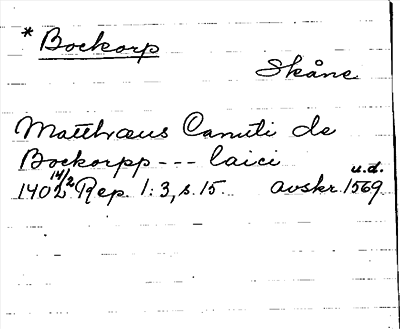 * Boekorp
Skåne
Matthæus Canuti de
Boekorpp --- laici
1402 14/2 Rep. 1:3, s. 15. avskr. u.d. 1569